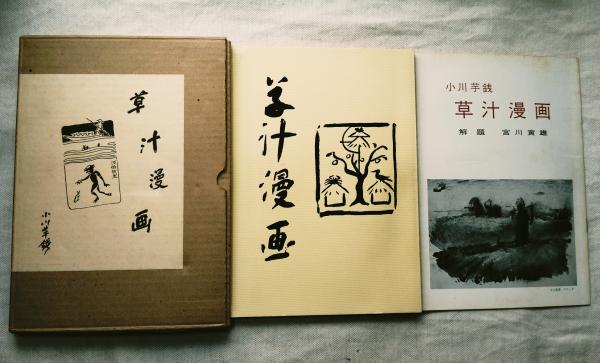 草汁漫画
小川芋銭
草汁漫画
小川芋銭
草汁漫画
解題 宮川寅雄